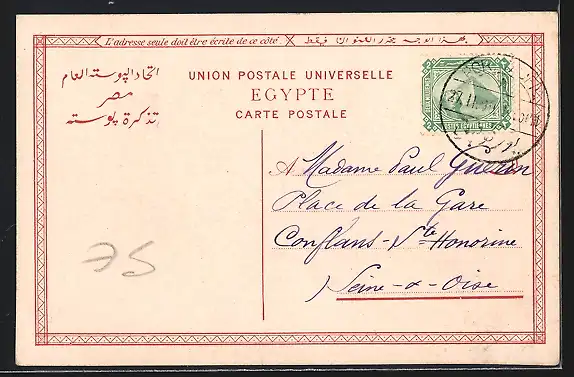 L'adresse seule doit être écrite de ce côté.
اتحاد البوستة العام
مصر
تذكرة بوستة
UNION POSTALE UNIVERSELLE
EGYPTE
CARTE POSTALE
A Madame Paul Guérin
Place de la Gare
Conflans-Ste Honorine
Seine-&-Oise
75